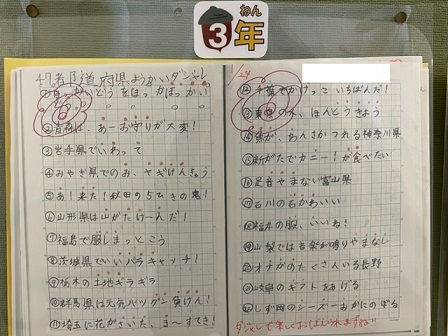 3年
ねん
47都道府県ようかいダジャレ
②青森は、あーお守りが大変!
③岩手県でいあって
④みやぎ県でのみ、さぎけんぎょう
⑤あ!来た!秋田の5ひきの鬼!
⑥山形県は山がたけーんだ!
⑦福島で服しまっとこう
⑧茨城県でいいバラキャッチ!
⑨栃木の土地ギラギラ
⑩群馬県は元気バツグン負けん!
⑪埼玉に花がさいた、ま〜すてき!
1/24
⑫千葉でかけっこいちばんだ!
⑬東京の水、ほんとうきょう
神奈川県
⑮新がたでカニー!が食べたい
⑯足音やまない富山県
⑰石川の石かわいい
⑱福井の服、いいね!
⑲山梨では音楽が鳴りやまなし
⑳オナガのたくさんいる長野
㉑岐阜のギフトをあげる
㉒しず岡のシーズーおかにのぼる